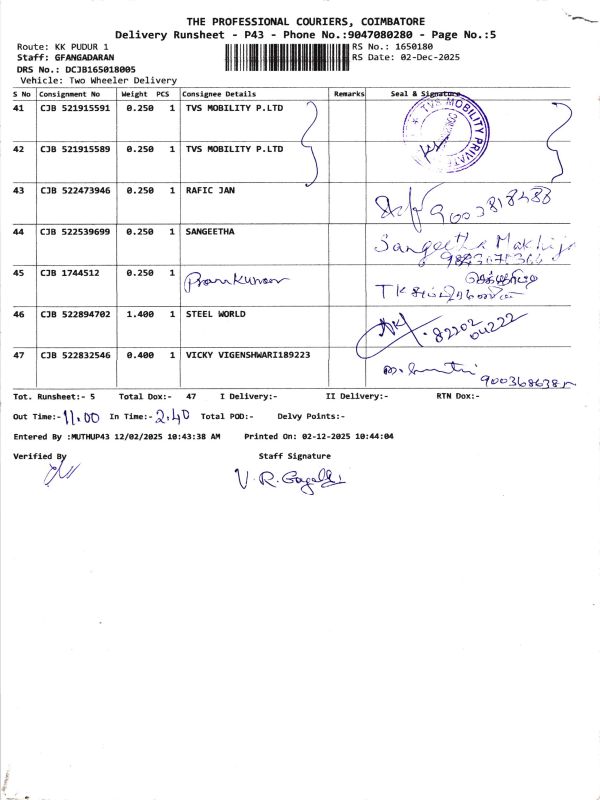 THE PROFESSIONAL COURIERS, COIMBATORE
Delivery Runsheet - P43 - Phone No.:9047080280 - Page No.:5
Route: KK PUDUR 1 RS No.: 1650180
Staff: GFANGADARAN RS Date: 02-Dec-2025
DRS No.: DCJB165018005
Vehicle: Two Wheeler Delivery
S No Consignment No Weight PCS Consignee Details Remarks Seal & Signature
41 CJB 521915591 0.250 1 TVS MOBILITY P.LTD TVS MOBILITY PRIVATE
42 CJB 521915589 0.250 1 TVS MOBILITY P.LTD
43 CJB 522473946 0.250 1 RAFIC JAN 9003818488
44 CJB 522539699 0.250 1 SANGEETHA Sangeetha Makhija
45 CJB 1744512 0.250 1
46 CJB 522894702 1.400 1 STEEL WORLD 82202 04222
47 CJB 522832546 0.400 1 VICKY VIGENSHWARI189223
Tot. Runsheet:- 5 Total Dox:- 47 I Delivery:- II Delivery:- RTN Dox:-
Out Time:- 11.00 In Time:- 2.40 Total POD:- Delvy Points:-
Entered By :MUTHUP43 12/02/2025 10:43:38 AM Printed On: 02-12-2025 10:44:04
Verified By Staff Signature
V. R.